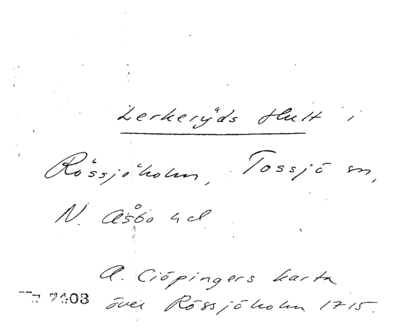 Lerkeryds Hult i
Rössjöholm, Tossjö sn,
N. Åsbo hd
A. Ciöpingers karta
över Rössjöholm 1715.
2408